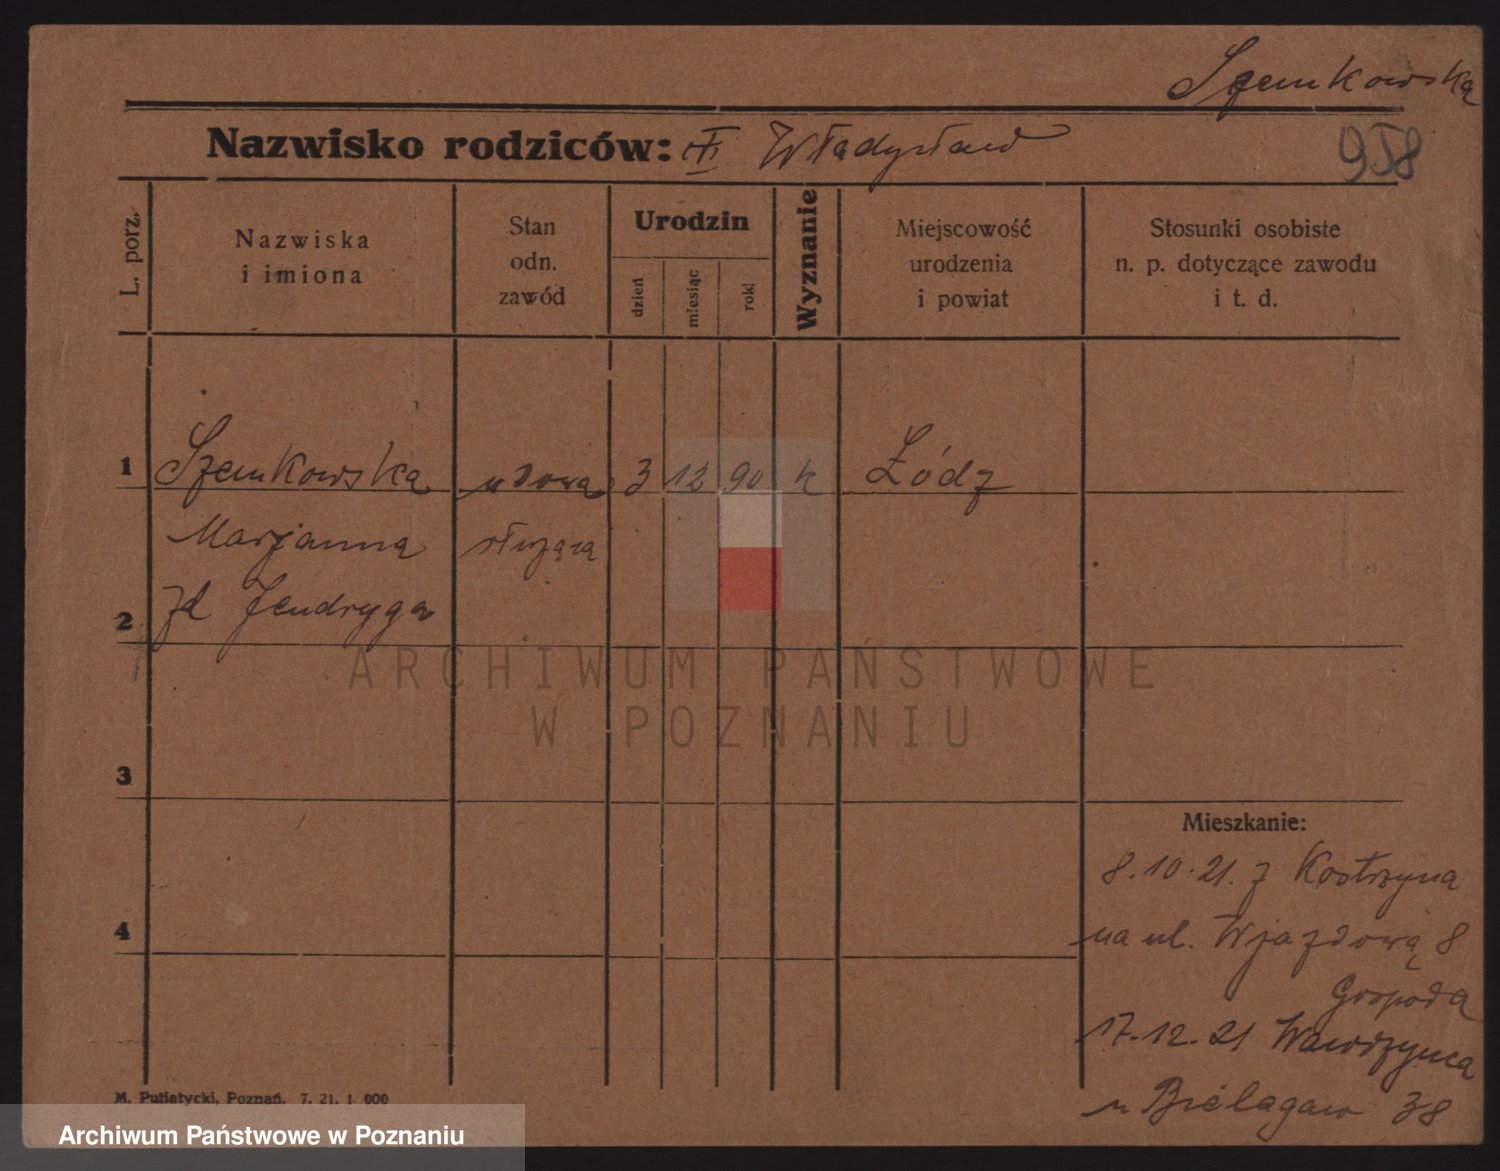 Szemkowska
Nazwisko rodziców: Władysław
958
L. porz.
Nazwiska
i imiona
Stan
odn.
zawód
Urodzin
dzień
miesiąc
rok
Wyznanie
Miejscowość
urodzenia
i powiat
Stosunki osobiste
n. p. dotyczące zawodu
i t. d.
1 Szemkowska wdowa 3 12 90 k Łódz
Marjanna służąca
2 zd Jendryga
ARCHIWUM PAŃSTWOWE
W POZNANIU
3
Mieszkanie:
8.10.21. z Kostrzyna
4
na ul. Wjazdową 8
Gospoda
17.12.21 Wawrzynca
u Bielagaw 38
M. Putiatycki, Poznań. 7. 21. 1 000
Archiwum Państwowe w Poznaniu